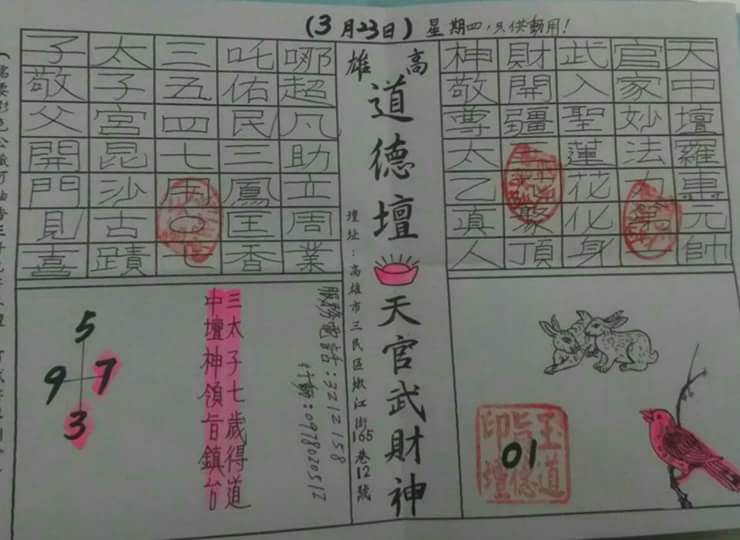 (3月23日)星期四,只供用!
天中壇羅元帥
官家妙法
武入聖蓮花化身
財開疆聚頂
神敬尊太乙真人
高雄
道德壇
天官武財神
壇址:高雄市三民區嫩江街165巷12號
哪超凡助立周業
吒佑民三鳳匡香
三五四七〇七
太子宮昆沙古蹟
子敬父開門見喜
服務電話:3212158
行動:0978020512
三太子七歲得道
中壇神領旨鎮台
5
9 7
3
玉旨
道德壇
印
01